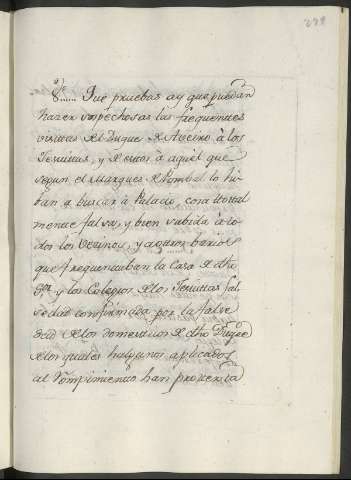 278
8...... Que pruebas ay que puedan
hazer sospechosas las frequentes
visitas del Duque de Aveiro à los
Jesuitas, y de estos à aquel que
segun el Marques de Pombal lo hi-
ban à buscar à Palacio, cosa total
mente falsa, y bien sabida à to-
dos los Vezinos, y à otros barios
que frequentauban la Casa de dho
y los Colegios de los Jesuitas fal
sedad confirmada por la false
dad de los domesticos de dho Duque
de los quales halgunos aplicados
al Rompimiento han protesta